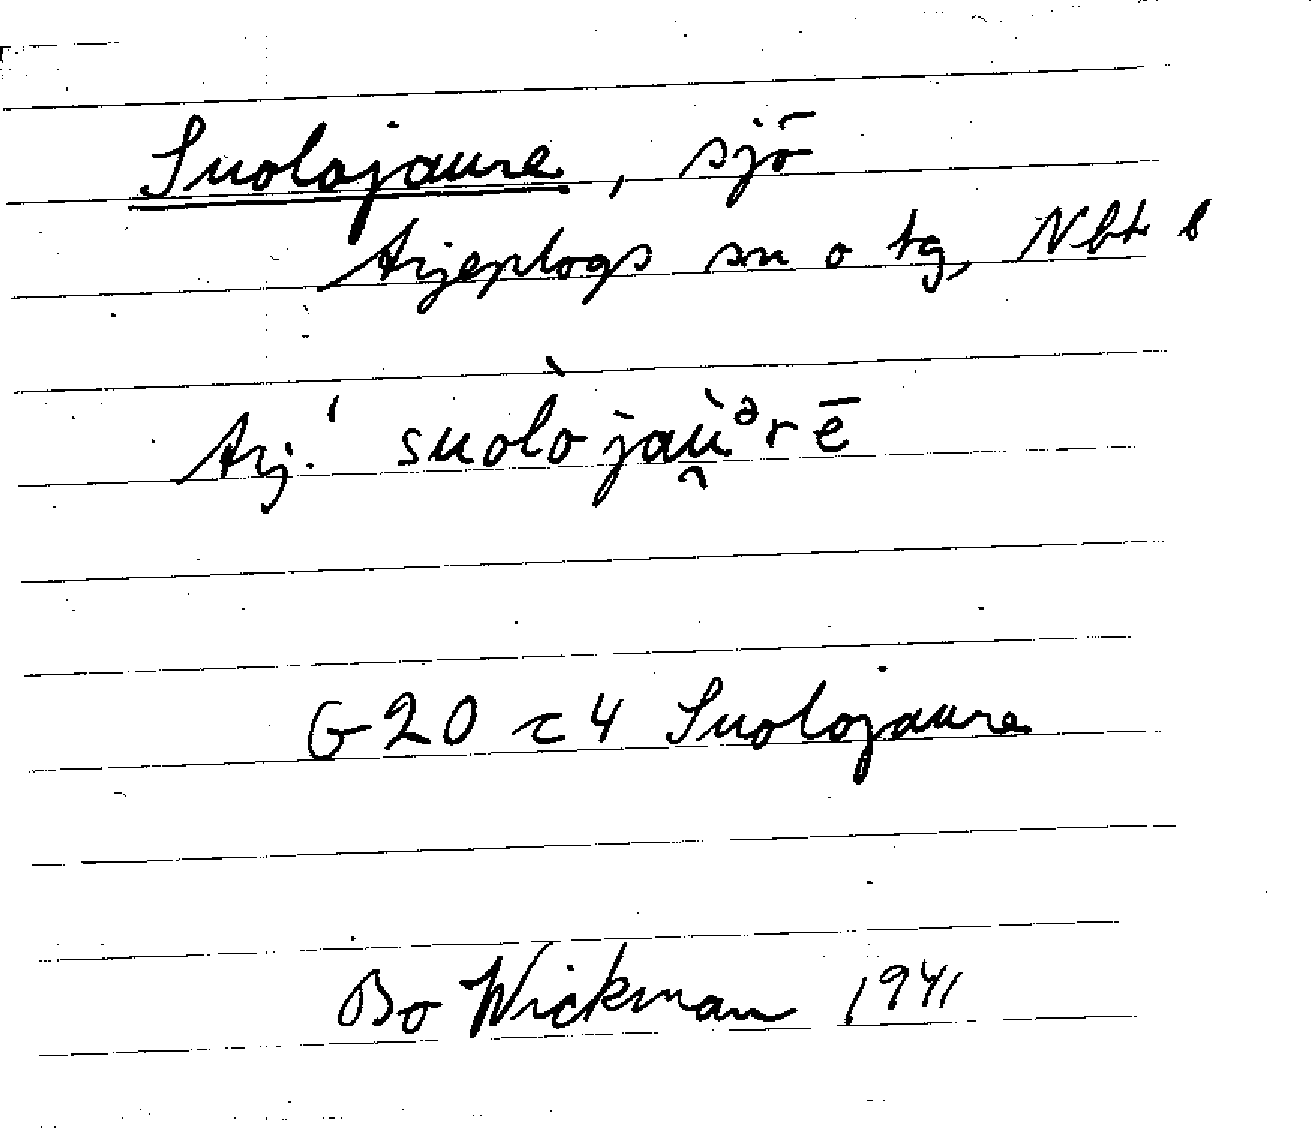 Suolojaure, sjö
Arjeplogs sn o tg, Nbt l
Arj. ˈsuolò jàù̯ᵊrē
G20 c4 Suolojaure
Bo Wickman 1941